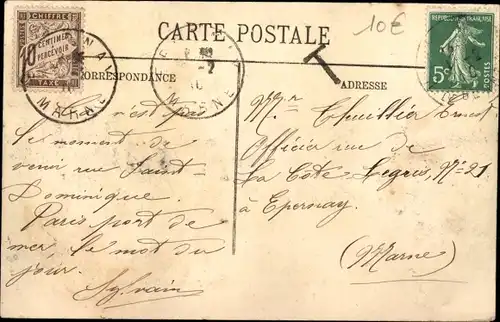 CARTE POSTALE
10€
CHIFFRE
10 CENTIMES À PERCEVOIR
TAXE
MARNE
T
RÉPUBLIQUE FRANÇAISE
5c
POSTES
CORRESPONDANCE
ADRESSE
n'est pas
le moment de
venir rue Saint-
Dominique.
Paris port de
mer, le mot du
jour.
Sylvain
Mr Ernest
rue de
La Côte Legris, No 21
à Epernay.
(Marne)